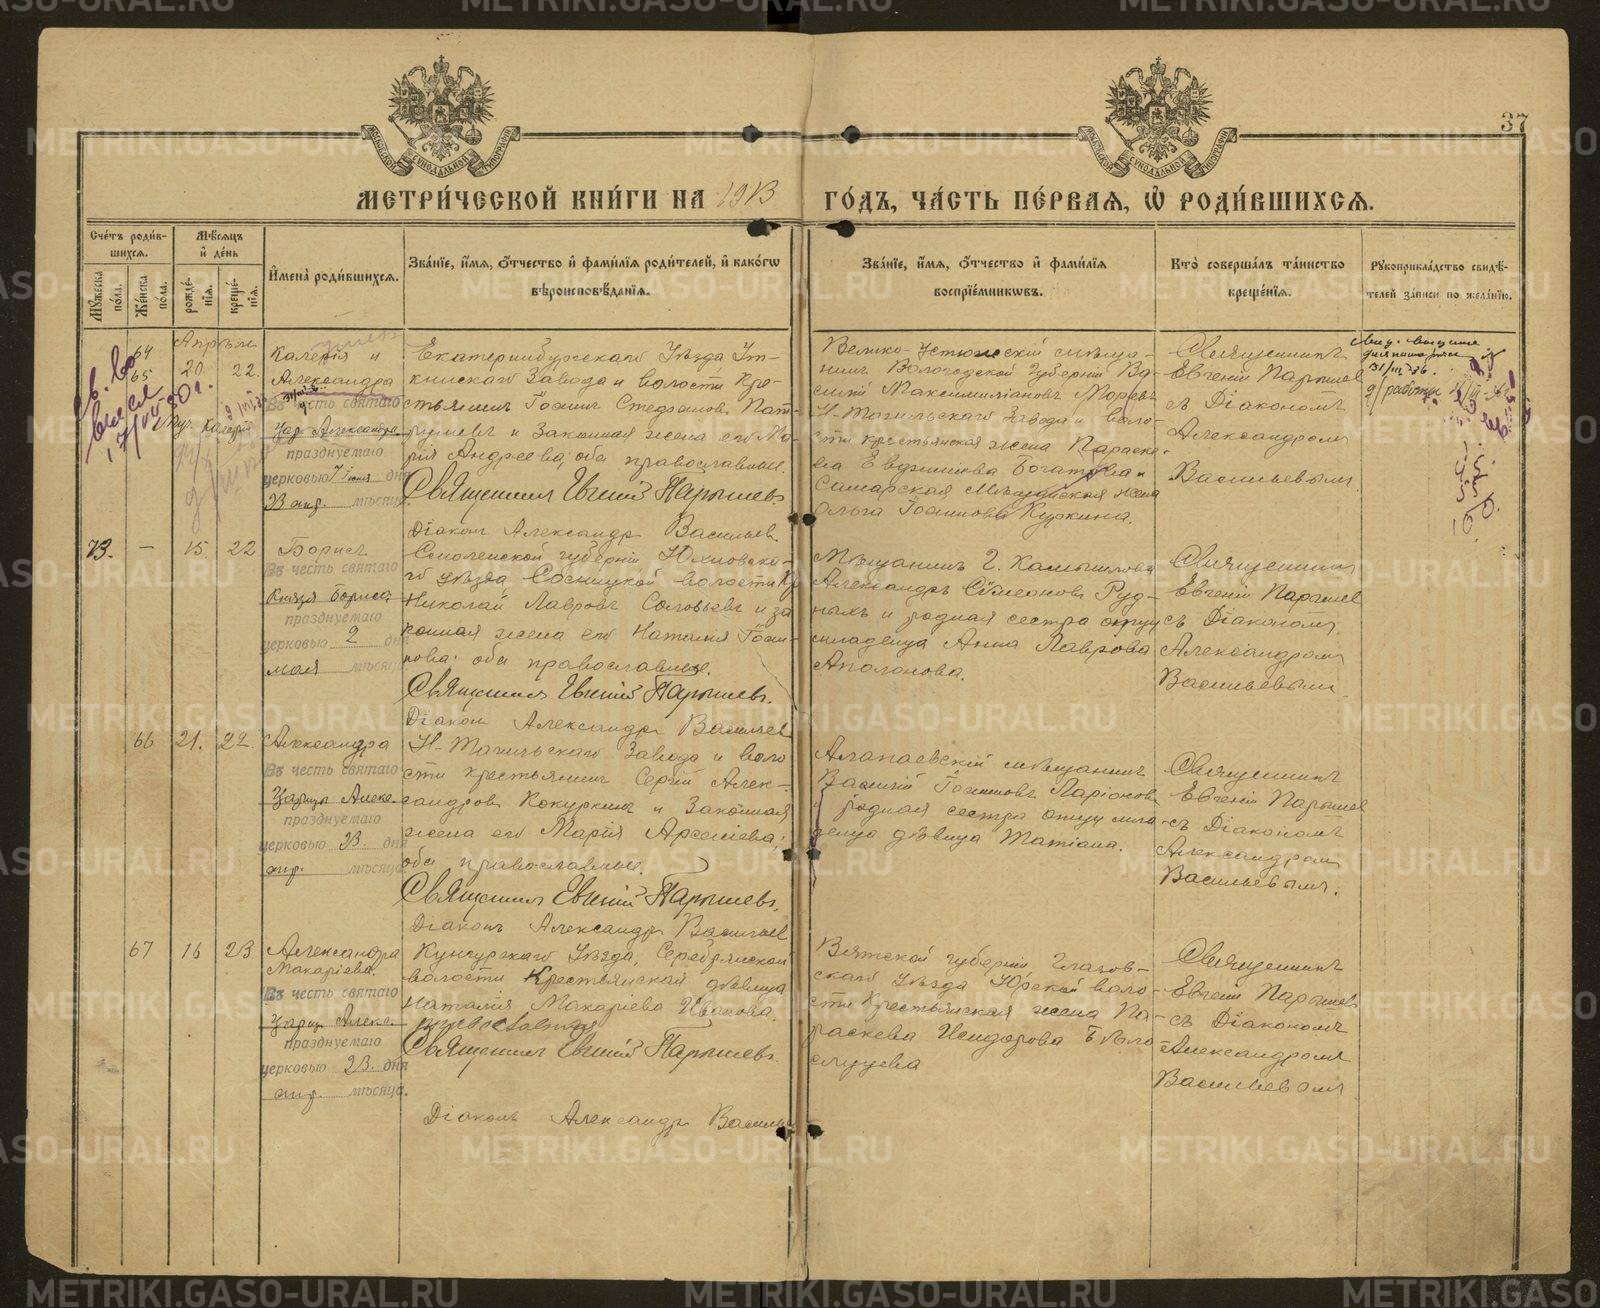 37
МОСКОВСКОЙ СѴНОДАЛЬНОЙ ТИПОГРАФІИ
МОСКОВСКОЙ СѴНОДАЛЬНОЙ ТИПОГРАФІИ
МЕТРИ́ЧЕСКОЙ КНИ́ГИ НА 1913 ГО́ДЪ, ЧА́СТЬ ПЕ́РВАѦ, Ѡ҆ РОДИ́ВШИХСѦ.
Сче́тъ роди́в-
шихсѧ.
Мꙋ́жеска по́ла.
Же́нска по́ла.
Мѣ́сѧцъ
и҆ де́нь
рожде́-
нїѧ.
креще́-
нїѧ.
И҆мена̀ роди́вшихсѧ.
Зва́нїе, и҆́мѧ, ѻ҆́тчество и҆ фами́лїѧ роди́телей, и҆ како́гѡ
вѣроисповѣ́данїѧ.
Зва́нїе, и҆́мѧ, ѻ҆́тчество и҆ фами́лїѧ
воспрїе́мникѡвъ.
Кто̀ соверша́лъ та́инство
креще́нїѧ.
Рꙋкоприкла́дство свидѣ́-
телей за́писи по жела́нїю.
Апрѣль
64
65
20
22.
Калерія и
Александра
Въ честь святаго
Муч. Калерій
Цар. Александра
празднуемаго
церковью 7 Іюня дня
23 апр. мѣсяца.
Екатеринбургскаго Уѣзда Ут-
кинскаго Завода и волости Кре-
стьянинъ Іоаннъ Стефановъ Пат-
рушевъ и Законная жена его Ма-
рія Андреева, оба православные.
Священникъ Евгеній Парышевъ
Діаконъ Александръ Васильев.
Велико-Устюжскій мѣща-
нинъ Вологодской Губерніи Ва-
силій Максимиліановъ Моревъ
Н-Тагильскаго Завода и воло-
сти крестьянская жена Параске-
ва Евфимиева Богатова и
Самарская Мѣщанская жена
Ольга Іоаннова Куркина.
Священникъ
Евгеній Парышев
съ Діакономъ
Александромъ
Васильевымъ.
31/III-36.
13.
—
15.
22
Борисъ
Въ честь святаго
Князя Бориса
празднуемаго
церковью 2 дня
мая мѣсяца
Смоленской губерніи Юхновска-
го уѣзда Сосницкой волости Кр
Николай Лавровъ Соловьевъ и за
конная жена его Наталія Іоан-
нова: оба православные.
Священникъ Евгеній Парышевъ.
Діаконъ Александръ Васильев
Мѣщанинъ г. Камышлова
Александръ Сѷмеоновъ Руд-
ныхъ и родная сестра отцу
младенца Анна Лаврова
Аполонова.
Священникъ
Евгеній Парышев
съ Діакономъ
Александромъ
Васильевымъ.
66
21.
22.
Александра
Въ честь святаго
Царицы Алекс.
празднуемаго
церковью 23. дня
апр. мѣсяца
Н-Тагильскаго Завода и воло
сти крестьянинъ Сергій Алек-
сандровъ Кокуркинъ и Законная
жена его Марія Арсеніева;
оба православные.
Священникъ Евгеній Парышевъ.
Діаконъ Александръ Васильев
Алапаевскій мѣщанинъ
Василій Іоанновъ Ларіоновъ
и родная сестра отцу мла-
денца дѣвица Татіана.
Священникъ
Евгеній Парышев
съ Діакономъ
Александромъ
Васильевымъ.
67
16
23.
Александра
Макаріева.
Въ честь святаго
Цариц Алекс.
празднуемаго
церковью 23. дня
апр. мѣсяца.
Кунгурскаго Уѣзда, Серебрянской
волости Крестьянская дѣвица
Наталія Макаріева Иванова.
православная
Священникъ Евгеній Парышевъ.
Діаконъ Александръ Васильев
Вятской губерніи Глазов-
скаго уѣзда Юрской воло-
сти Крестьянская жена Па-
раскева Исидорова Бѣло
слудцева
Священникъ
Евгеній Парышевъ
съ Діакономъ
Александромъ
Васильевымъ
METRIKI.GASO-URAL.RU